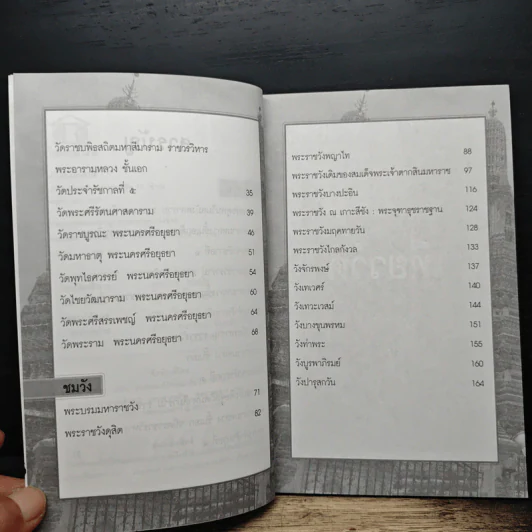 วัดราชบพิธสถิตมหาสีมาราม ราชวรวิหาร
พระอารามหลวง ชั้นเอก
วัดประจำรัชกาลที่ ๕ 35
วัดพระศรีรัตนศาสดาราม 39
วัดราชบูรณะ พระนครศรีอยุธยา 46
วัดมหาธาตุ พระนครศรีอยุธยา 51
วัดพุทไธศวรรย์ พระนครศรีอยุธยา 54
วัดไชยวัฒนาราม พระนครศรีอยุธยา 60
วัดพระศรีสรรเพชญ์ พระนครศรีอยุธยา 64
วัดพระราม พระนครศรีอยุธยา 68
ชมวัง
พระบรมมหาราชวัง 71
พระราชวังดุสิต 82
พระราชวังพญาไท 88
พระราชวังเดิมของสมเด็จพระเจ้าตากสินมหาราช 97
พระราชวังบางปะอิน 116
พระราชวัง ณ เกาะสีชัง : พระจุฑาธุชราชฐาน 124
พระราชวังมฤคทายวัน 128
พระราชวังไกลกังวล 133
วังจักรพงษ์ 137
วังเทเวศร์ 140
วังเทวะเวสม์ 144
วังบางขุนพรหม 151
วังท่าพระ 155
วังบูรพาภิรมย์ 160
วังปารุสกวัน 164